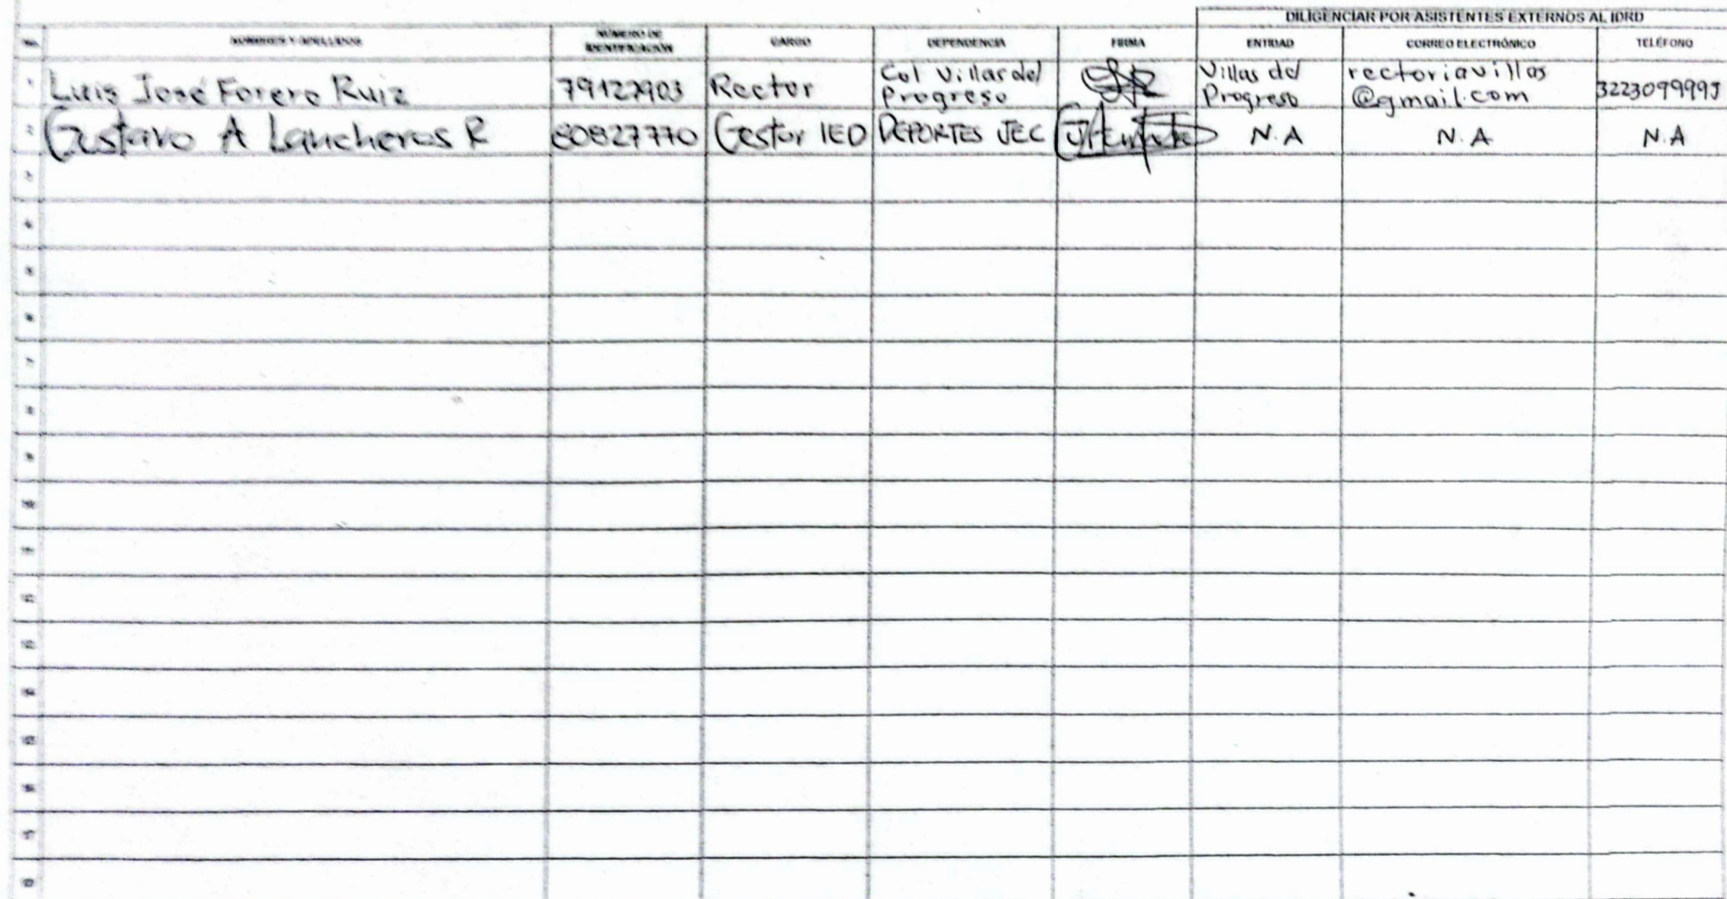 DILIGENCIAR POR ASISTENTES EXTERNOS AL IDRD
No. NOMBRES Y APELLIDOS NÚMERO DE IDENTIFICACIÓN CARGO DEPENDENCIA FIRMA ENTIDAD CORREO ELECTRÓNICO TELÉFONO
1 Luis José Forero Ruiz 79127903 Rector Col Villas del Progreso Villas del Progreso rectoriavillas@gmail.com
2 Gustavo A Lancheros R 80827770 Gestor IED DEPORTES JEC N.A N.A N.A
3
4
5
6
7
8
9
10
11
12
13
14
15
16
17
18